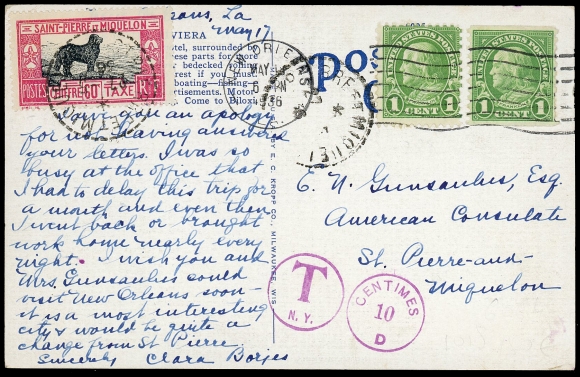 SAINT-PIERRE & MIQUELON
POSTES
CHIFFRE 60c TAXE
La
May 17
RIVIERA
hotel, surrounded by
these parts for more
bedecked fishing
rest if you must
boating—fishing—
Motor
Come to Biloxi,
NEW ORLEANS
MAY
6 PM
1936
UNITED STATES POSTAGE
1 CENT 1
UNITED STATES POSTAGE
1 CENT 1
ST PIERRE ET MIQUELON
I owe you an apology
for not having answered
your letters. I was so
busy at the office that
I had to delay this trip for
a month and even then
I went back or brought
work home nearly every
night. I wish you and
Mrs. Gunsaulus could
visit New Orleans soon—
it is a most interesting
city & would be quite a
change from St Pierre
Sincerely Clara Borjes
BY E. C. KROPP CO., MILWAUKEE, WIS.
E. N. Gunsaulus, Esq.
American Consulate
St. Pierre-and-
Miquelon
T
N.Y.
CENTIMES
10
D